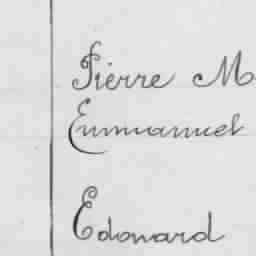 Pierre M
Emmanuel
Edouard